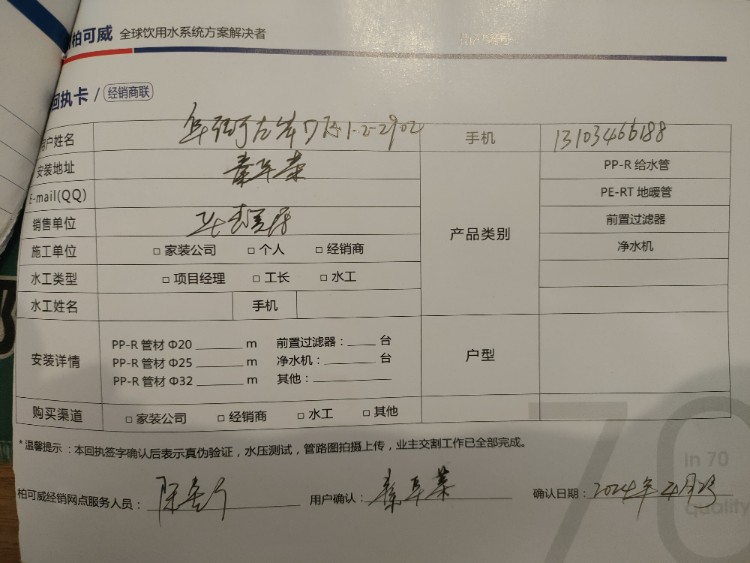 柏可威 全球饮用水系统方案解决者
回执卡 / 经销商联
用户姓名 1-2-2902 手机 13103466188
安装地址 秦军荣 PP-R 给水管
E-mail(QQ) PE-RT 地暖管
销售单位 产品类别 前置过滤器
施工单位 □ 家装公司 □ 个人 □ 经销商 净水机
水工类型 □ 项目经理 □ 工长 □ 水工
水工姓名 手机
安装详情 户型
PP-R 管材 Φ20 ______ m 前置过滤器：____ 台
PP-R 管材 Φ25 ______ m 净水机：____ 台
PP-R 管材 Φ32 ______ m 其他：______
购买渠道 □ 家装公司 □ 经销商 □ 水工 □ 其他
* 温馨提示：本回执签字确认后表示真伪验证，水压测试，管路图拍摄上传，业主交割工作已全部完成。
70
in 70
quality
柏可威经销网点服务人员： 用户确认：秦军荣 确认日期：2024年4月23